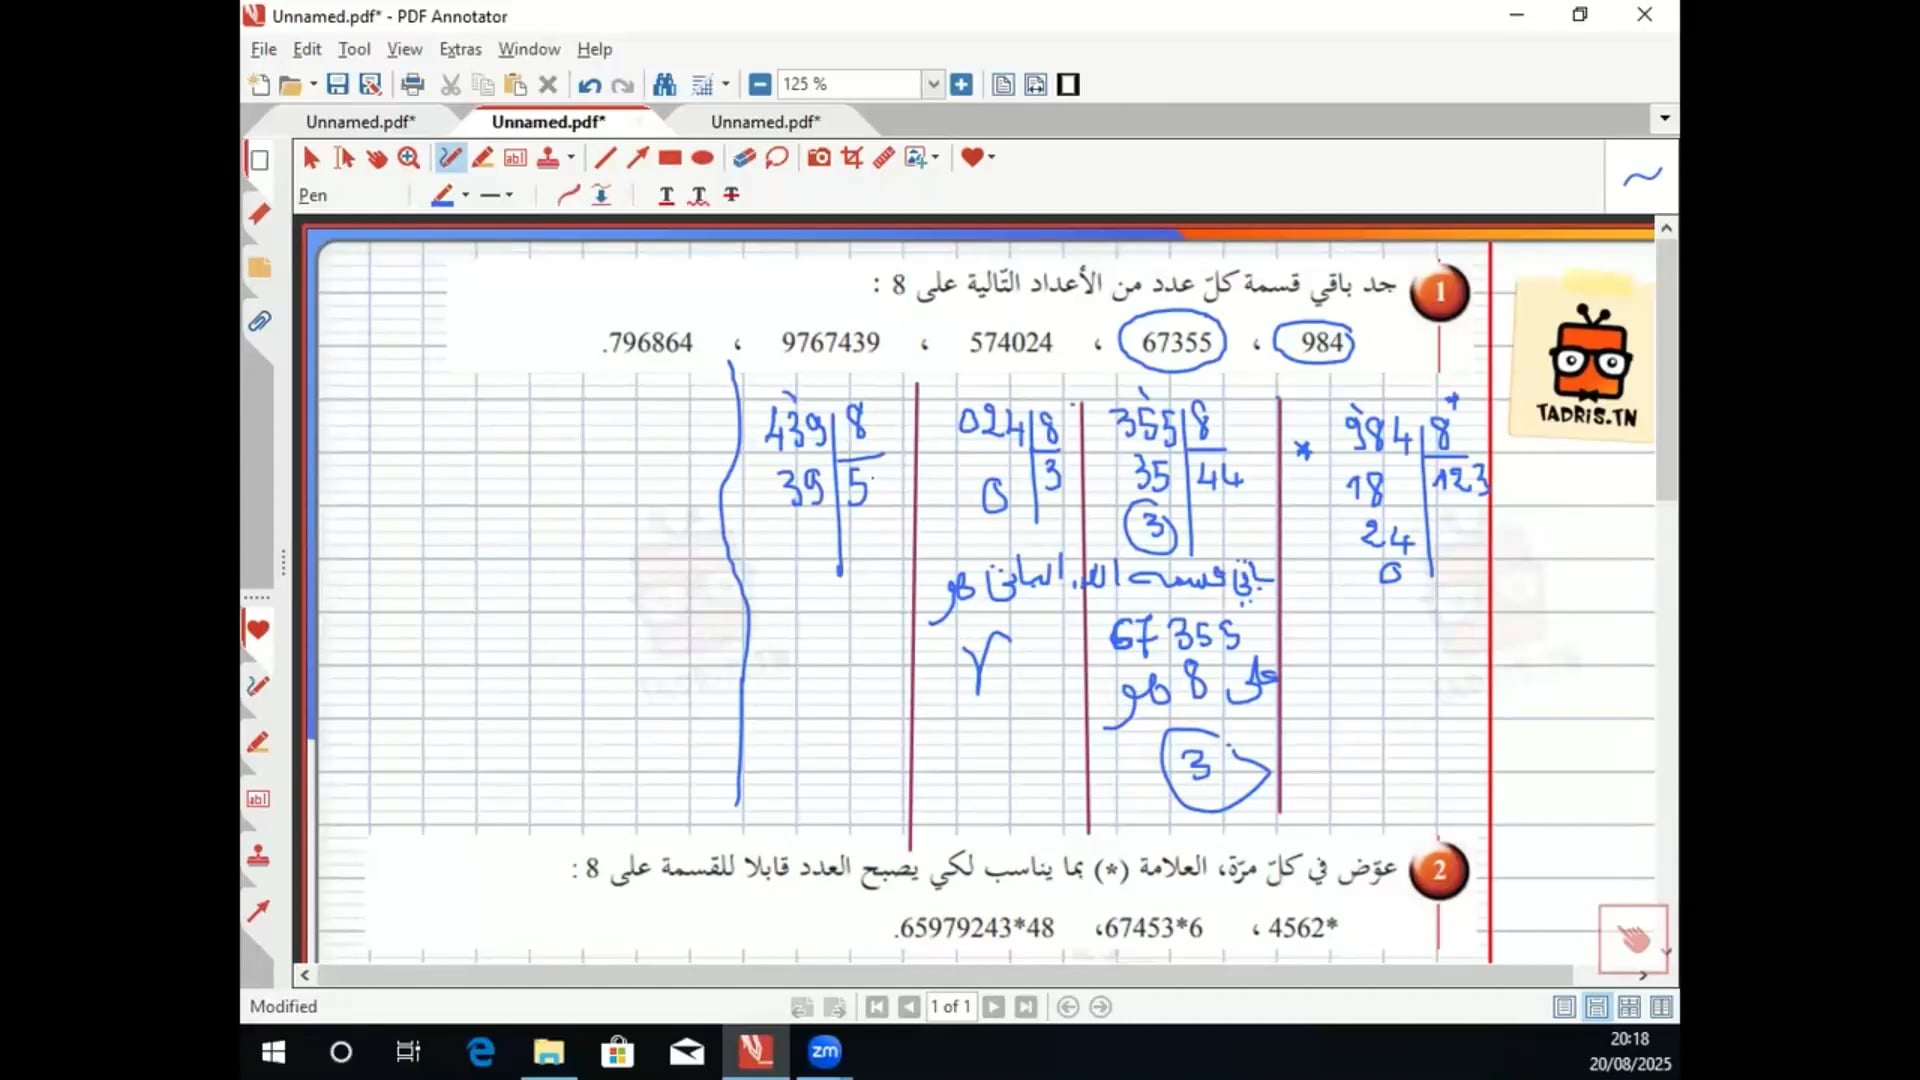 Unnamed.pdf* - PDF Annotator
File Edit Tool View Extras Window Help
125 %
Unnamed.pdf* Unnamed.pdf* Unnamed.pdf*
Pen
1 جد باقي قسمة كلّ عدد من الأعداد التّالية على 8 :
984 ، 67355 ، 574024 ، 9767439 ، 796864.
TADRIS.TN
984 8
123
18
24
0
355 8
35 44
3
باقي قسمة
67355
على 8 هو
3
024 8
3
0
الباقي هو
439 8
39 5
2 عوّض في كلّ مرّة، العلامة (*) بما يناسب لكي يصبح العدد قابلا للقسمة على 8 :
4562* ، 67453*6، 65979243*48.
Modified
1 of 1
zm
20:18
20/08/2025